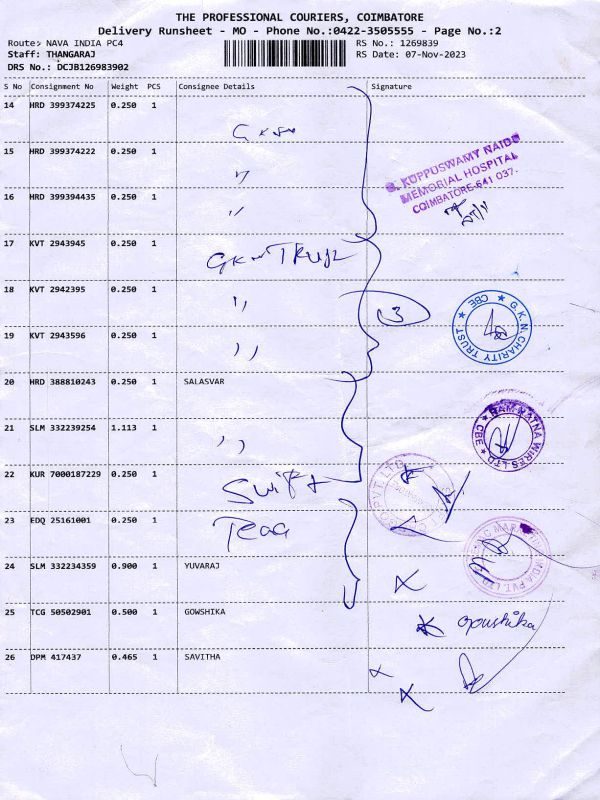 THE PROFESSIONAL COURIERS, COIMBATORE
Delivery Runsheet - MO - Phone No.:0422-3505555 - Page No.:2
Route: NAVA INDIA PC4
RS No.: 1269839
Staff: THANGARAJ
RS Date: 07-Nov-2023
DRS No.: DCJB126983902
S No Consignment No Weight PCS Consignee Details Signature
14 HRD 399374225 0.250 1
15 HRD 399374222 0.250 1 "
G. KUPPUSWAMY NAIDU
MEMORIAL HOSPITAL
COIMBATORE-641 037.
16 HRD 399394435 0.250 1 "
17 KVT 2943945 0.250 1
18 KVT 2942395 0.250 1 "
3
G.K.N. CHARITY TRUST. ★ CBE ★
19 KVT 2943596 0.250 1 "
20 HRD 388810243 0.250 1 SALASVAR
21 SLM 332239254 1.113 1 "
RAM RATNA WIRES LTD ★ CBE ★
22 KUR 7000187229 0.250 1 Swift
PVT. LTD
23 EDQ 25161001 0.250 1
24 SLM 332234359 0.900 1 YUVARAJ
INDIA PVT. LTD
25 TCG 50502901 0.500 1 GOWSHIKA
26 DPM 417437 0.465 1 SAVITHA